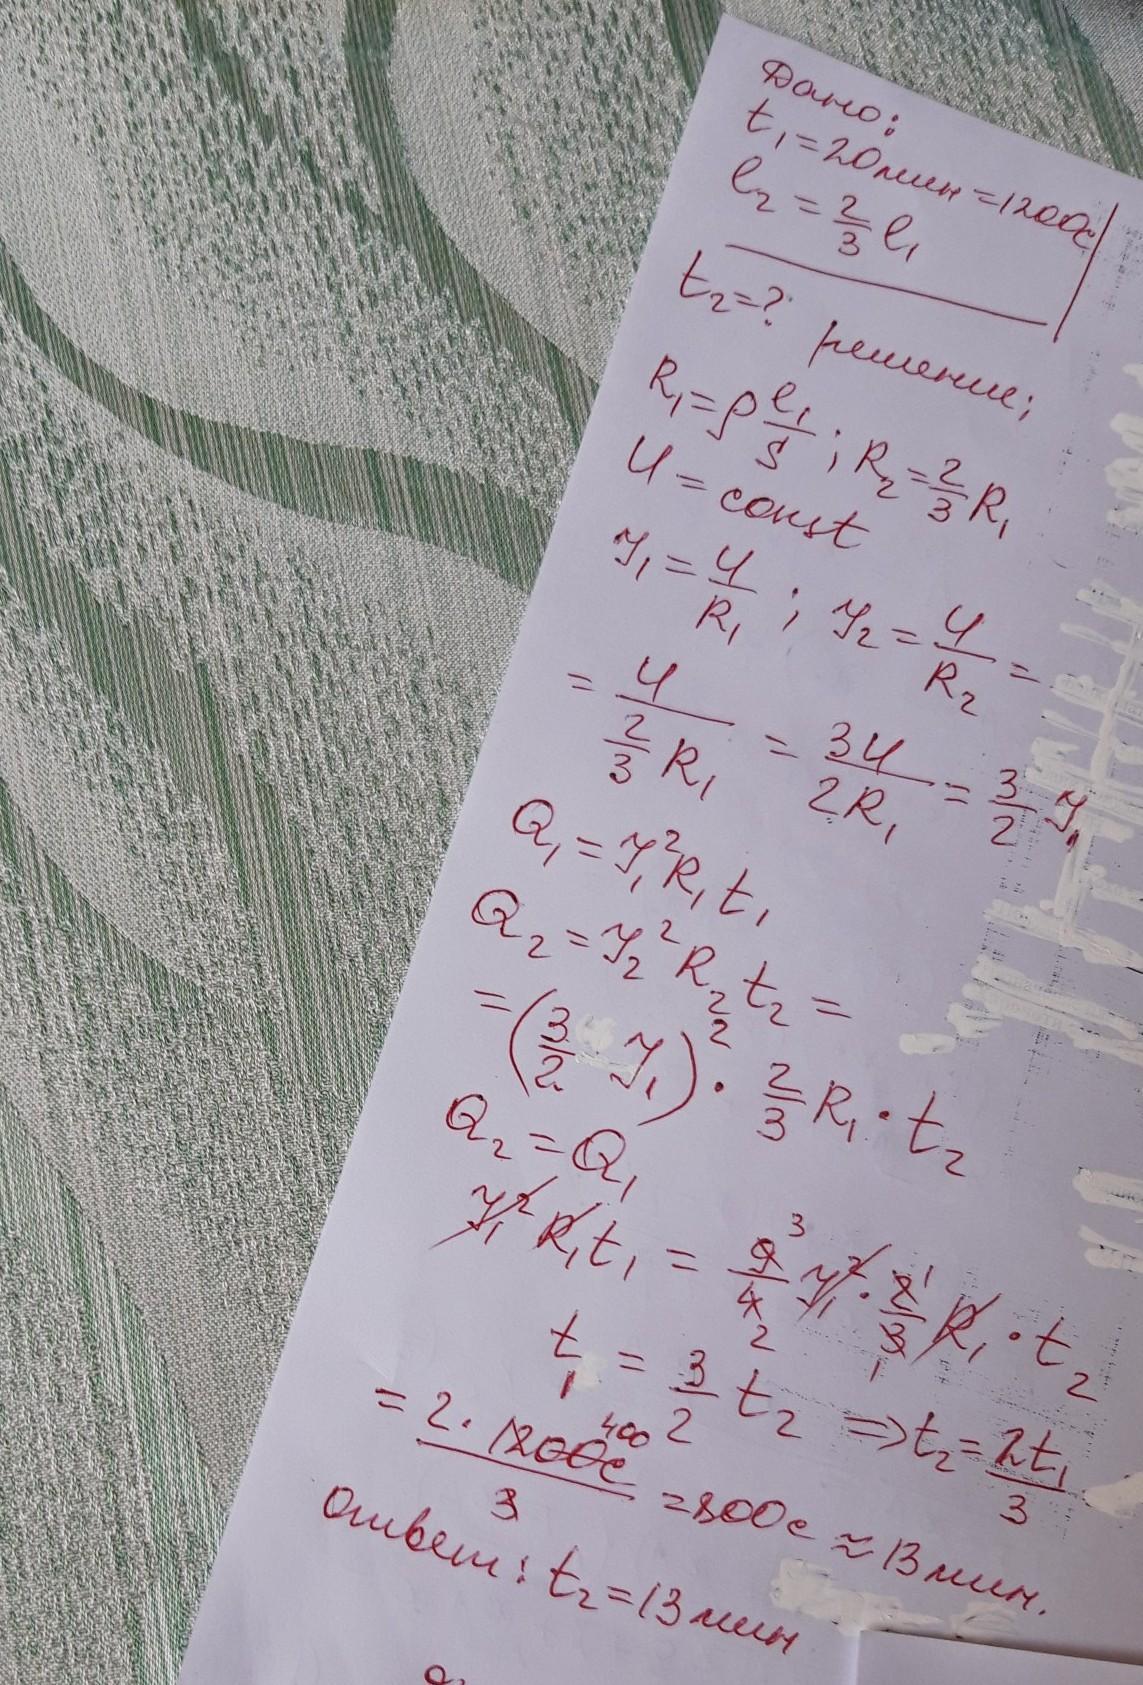 Дано:
t₁ = 20 мин = 1200с
l₂ = 2/3 l₁
t₂ = ?
решение:
R₁ = ρ l₁/S ; R₂ = 2/3 R₁
U = const
I₁ = U/R₁ ; I₂ = U/R₂ =
= U/(2/3 R₁) = 3U/2R₁ = 3/2 I₁
Q₁ = I₁² R₁ t₁
Q₂ = I₂² R₂ t₂ =
= (3/2 I₁)² · 2/3 R₁ · t₂
Q₂ = Q₁
I₁² R₁ t₁ = 9/4 I₁² · 2/3 R₁ · t₂
t₁ = 3/2 t₂ => t₂ = 2t₁/3
= 2 · 1200с/3 = 800с ≈ 13 мин.
Ответ: t₂ = 13 мин